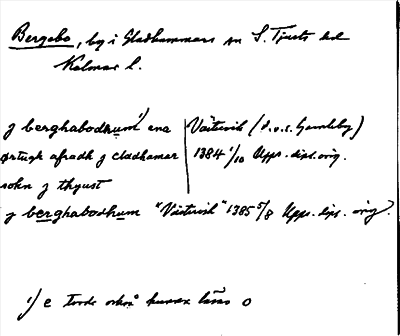 Bergebo, by i Gladhammars sn S. Tjusts hd
Kalmar l.
j berghabodhum¹⁾ ena
ørtugh afradh j cladhamar
sokn j thyust
Västervik (d.v.s. Gamleby)
1384 1/10 Upps. dipl. orig.
j berghabodhum "Västervik" 1385 5/8 Upps. dipl. orig.
1) e torde också kunna läsas o